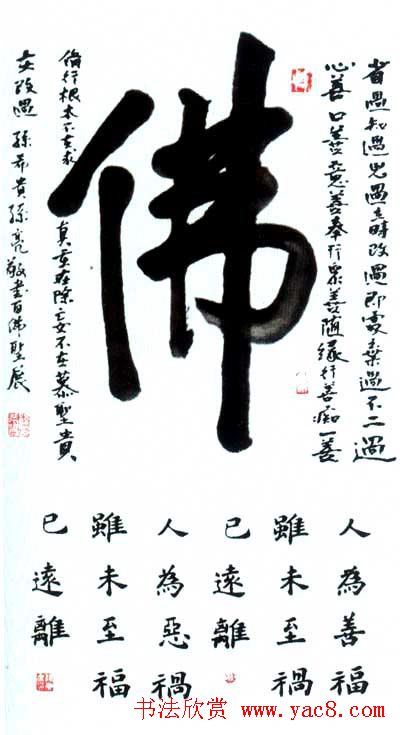 省過知過見過立時改過即處棄過不二過
心善口善意善奉行眾善隨緣行善痴一善
佛
脩行根本不在求真重在除妄不在慕聖貴
在改過孫希貴孫亮敬書百佛聖展
人為善福
雖未至禍
已遠離
人為惡禍
雖未至福
已遠離
书法欣赏 www.yac8.com